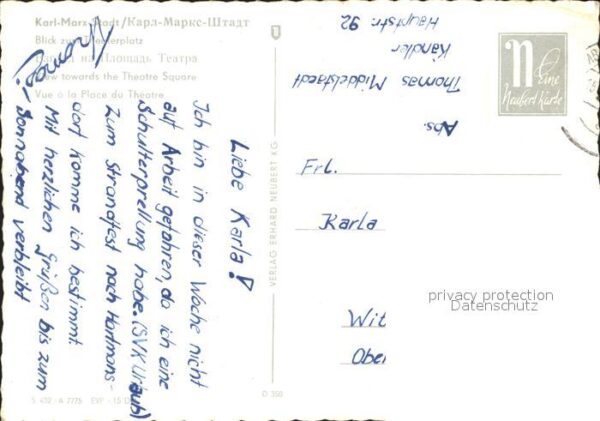 Karl-Marx-Stadt/Карл-Маркс-Штадт
Blick zum Theaterplatz
Взгляд на Площадь Театра
View towards the Theatre Square
Vue à la Place du Théatre
Liebe Karla!
Ich bin in dieser Woche nicht
auf Arbeit gefahren, da ich eine
Schulterprellung habe. (SVK Urlaub)
Zum Strandfest nach Hartmans-
dorf komme ich bestimmt.
Mit herzlichen Grüßen bis zum
Sonnabend verbleibt
Thomas
Abs.
Thomas Middelstaedt
Kändler
Hauptstr. 92
N Eine
Neubert Karte
VERLAG ERHARD NEUBERT KG
Frl.
Karla
Wit
Ober
privacy protection
Datenschutz
S 432/A 7775
D 350